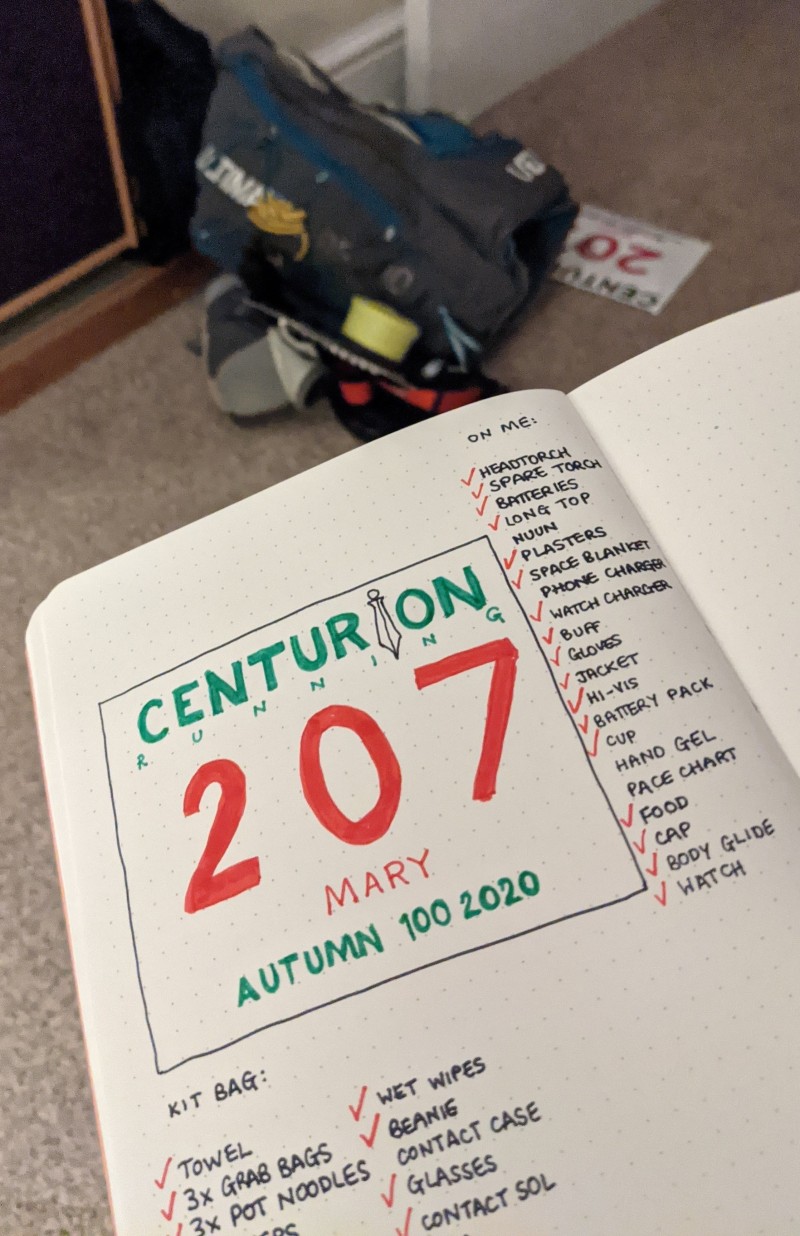 ULTIMA
20
CENTU
ON ME:
✓ HEADTORCH
✓ SPARE TORCH
✓ BATTERIES
✓ LONG TOP
NUUN
✓ PLASTERS
✓ SPACE BLANKET
PHONE CHARGER
✓ WATCH CHARGER
✓ BUFF
✓ GLOVES
✓ JACKET
✓ HI-VIS
✓ BATTERY PACK
✓ CUP
HAND GEL
PACE CHART
✓ FOOD
✓ CAP
✓ BODY GLIDE
✓ WATCH
CENTURION
RUNNING
207
MARY
AUTUMN 100 2020
KIT BAG:
✓ TOWEL
✓ 3x GRAB BAGS
✓ 3x POT NOODLES
✓ WET WIPES
✓ BEANIE
CONTACT CASE
✓ GLASSES
✓ CONTACT SOL